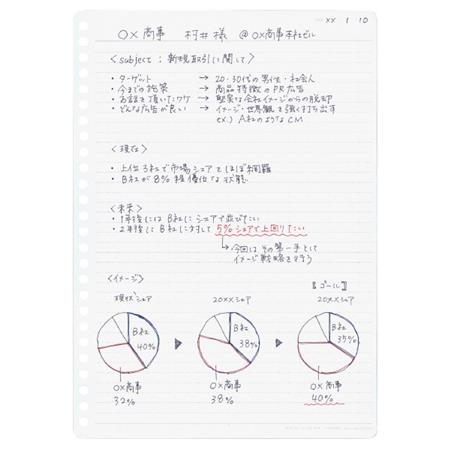 XX 1 10
○×商事 村井様 @○×商事本社ビル
<subject：新規取引に関して>
・ターゲット → 20・30代の男性・社会人
・今までの施策 → 商品特徴のPR広告
・お話を頂いたワケ → 堅実な会社イメージからの脱却
・どんな広告が良い → イメージ・世界観を強く打ち出す
ex.) A社のようなCM
<現在>
・上位3社で市場シェアをほぼ網羅
・B社が8%程優位な状態
<未来>
・1年後にはB社にシェアで並びたい
・2年後にB社に対して5%シェアで上回りたい
→今回はその第一手として
イメージ戦略を行う
<イメージ>
【ゴール】
現状シェア 20××シェア 20××シェア
B社 40% B社 38% B社 35%
○×商事 ○×商事 ○×商事
32% 38% 40%